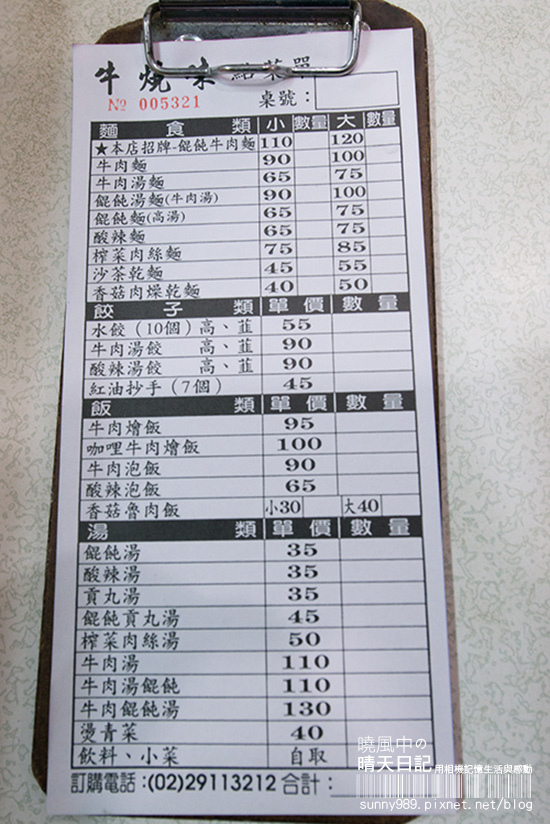 牛燒味 點菜單
№ 005321 桌號：
麵食類 小 數量 大 數量
★本店招牌-餛飩牛肉麵 110 120
牛肉麵 90 100
牛肉湯麵 65 75
餛飩湯麵(牛肉湯) 90 100
餛飩麵(高湯) 65 75
酸辣麵 65 75
榨菜肉絲麵 75 85
沙茶乾麵 45 55
香菇肉燥乾麵 40 50
餃子類 單價 數量
水餃（10個）高、韮 55
牛肉湯餃 高、韮 90
酸辣湯餃 高、韮 90
紅油抄手（7個） 45
飯類 單價 數量
牛肉燴飯 95
咖哩牛肉燴飯 100
牛肉泡飯 90
酸辣泡飯 65
香菇魯肉飯 小30 大40
湯類 單價 數量
餛飩湯 35
酸辣湯 35
貢丸湯 35
餛飩貢丸湯 45
榨菜肉絲湯 50
牛肉湯 110
牛肉湯餛飩 110
牛肉餛飩湯 130
燙青菜 40
飲料、小菜 自取
訂購電話：(02)29113212 合計：
曉風中の
晴天日記 用相機記憶生活與感動
sunny989.pixnet.net/blog